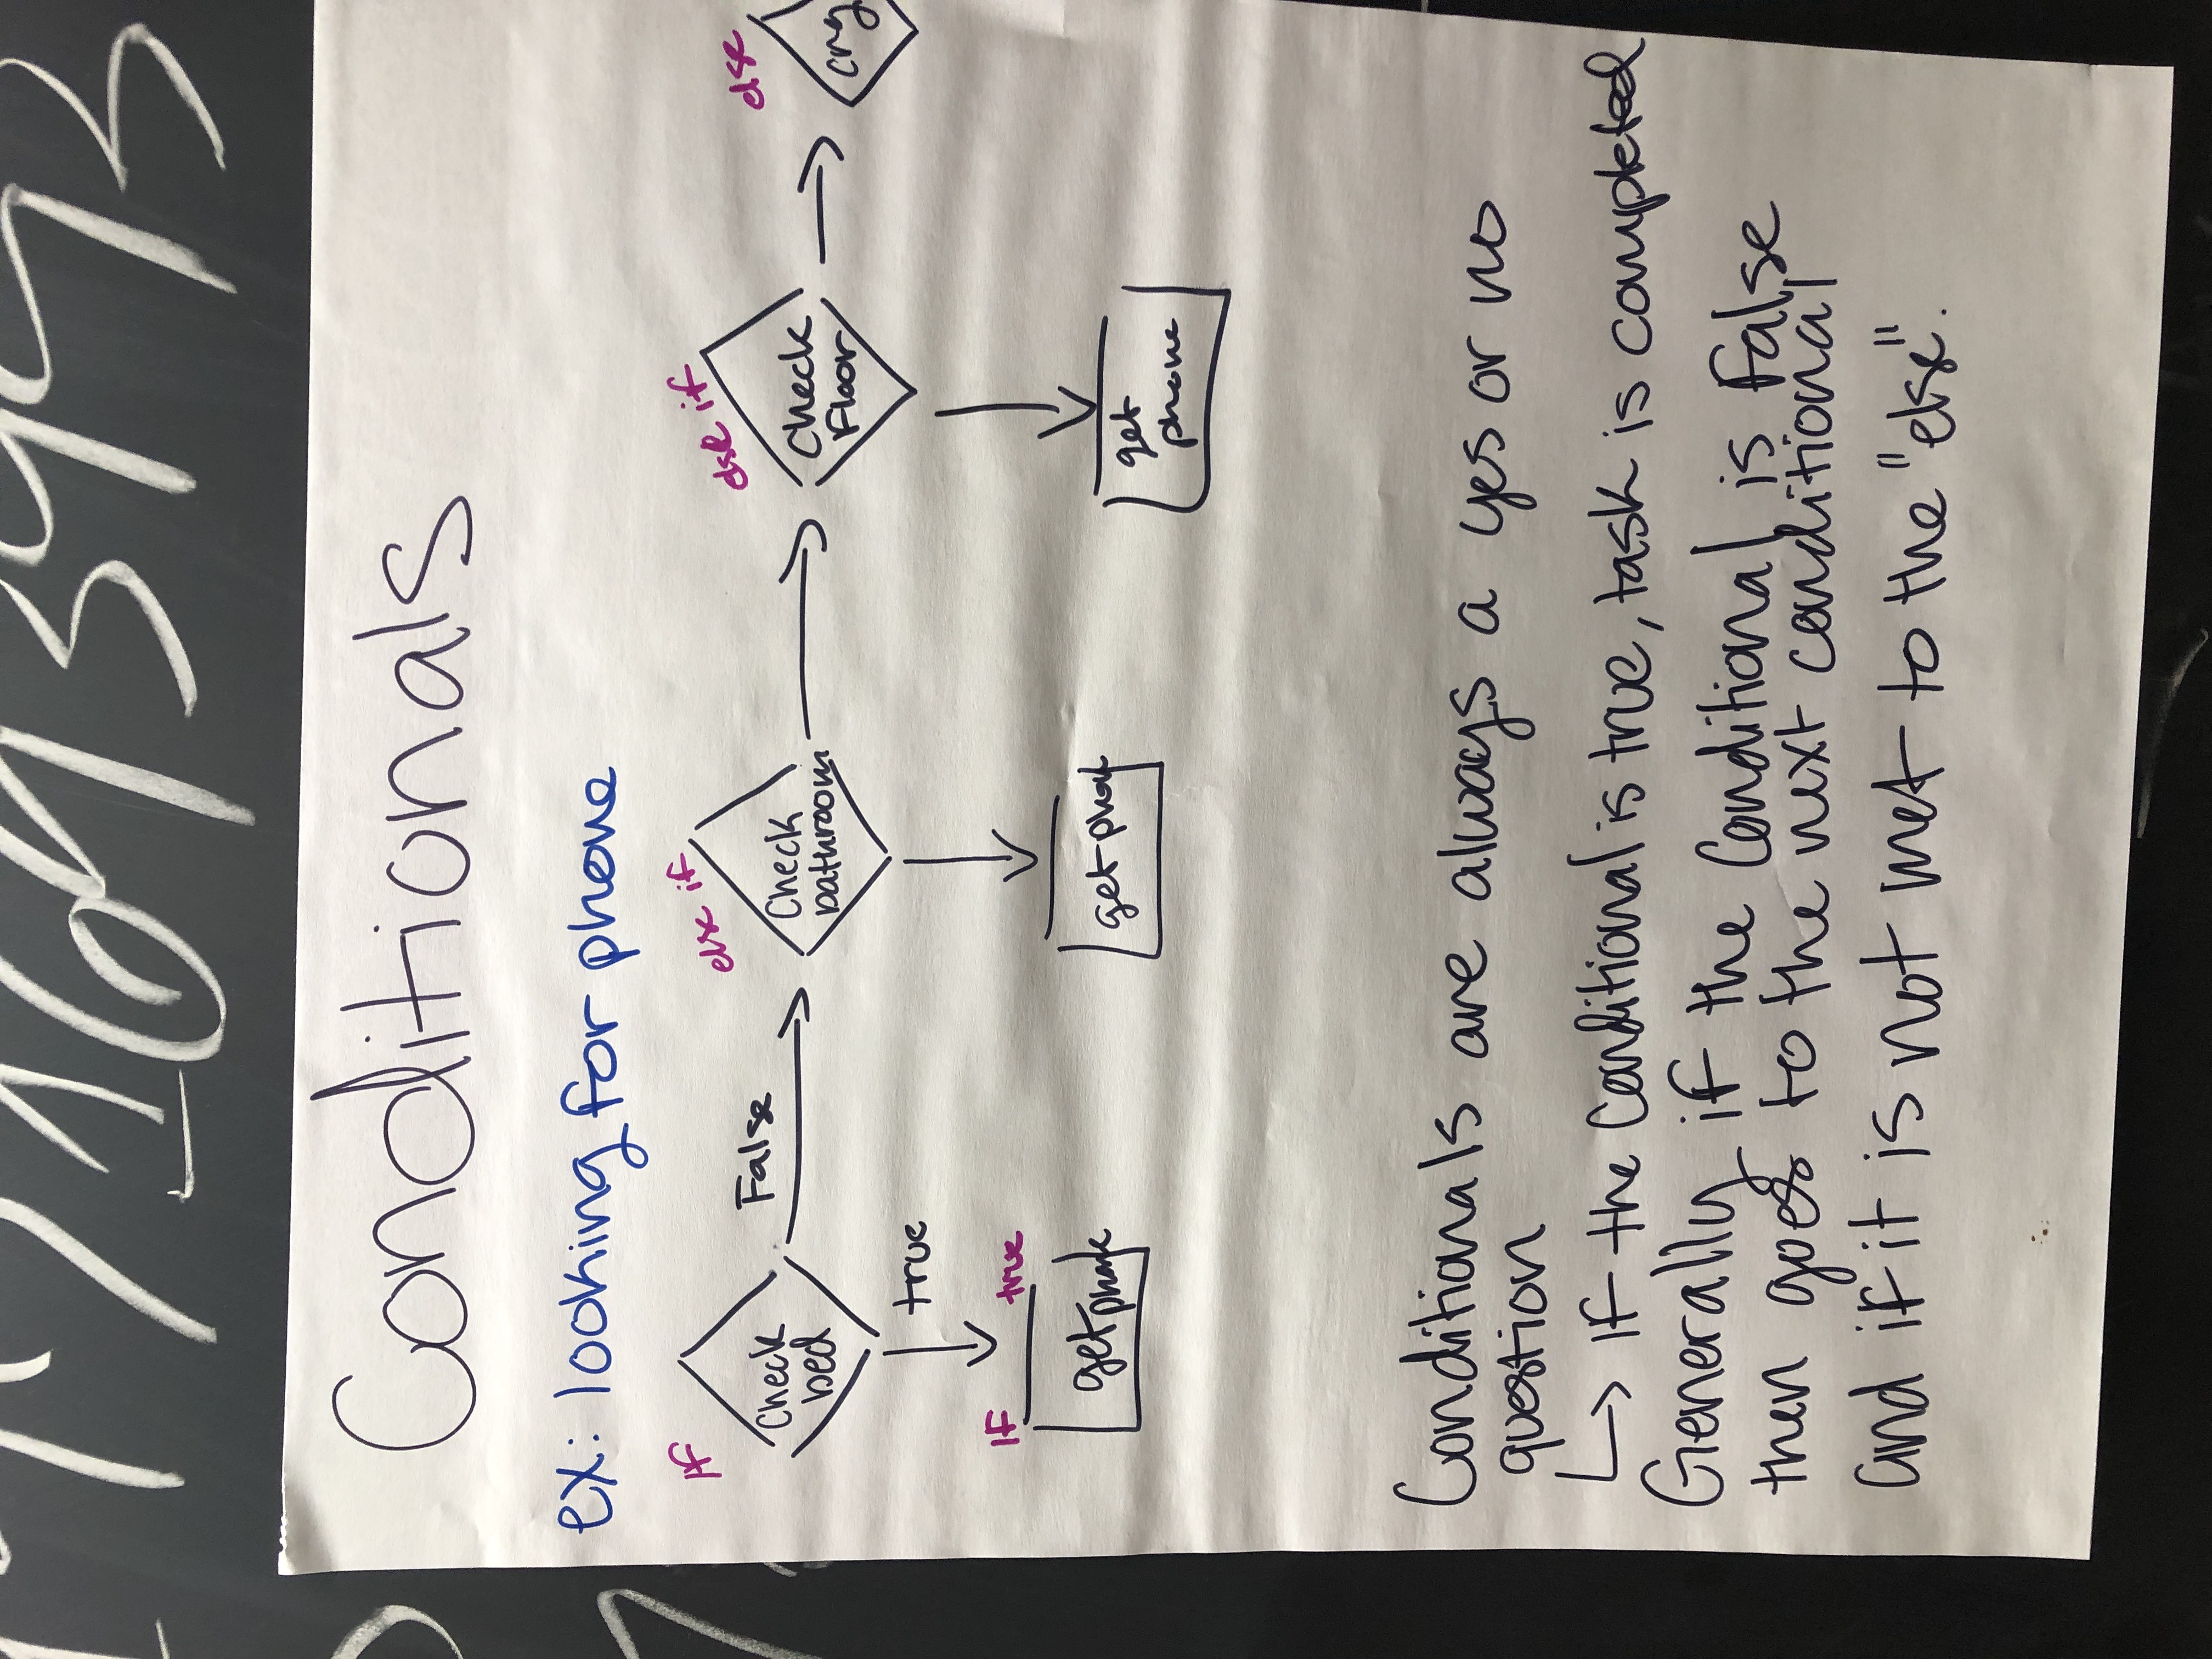 Conditionals
ex: looking for phone
If
else if
else if
else
Check
bed
False
Check
bathroom
Check
Floor
cry
true
If true
get phone
get phone
get
phone
Conditionals are always a yes or no
question
↳ If the Conditional is true, task is completed
Generally if the Conditional is False
then goes to the next conditional
and if it is not met to the "else".